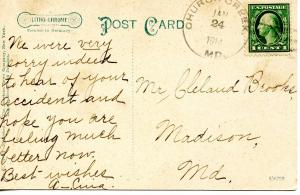 LITHO-CHROME
POST CARD
CHURCH CREEK
JAN
24
MD.
U.S. POSTAGE
1 CENT 1
We were very
sorry indeed
to hear of your
accident and
hope you are
feeling much
better now.
Best wishes
Mr. Cleland Brooks,
Madison,
Md.